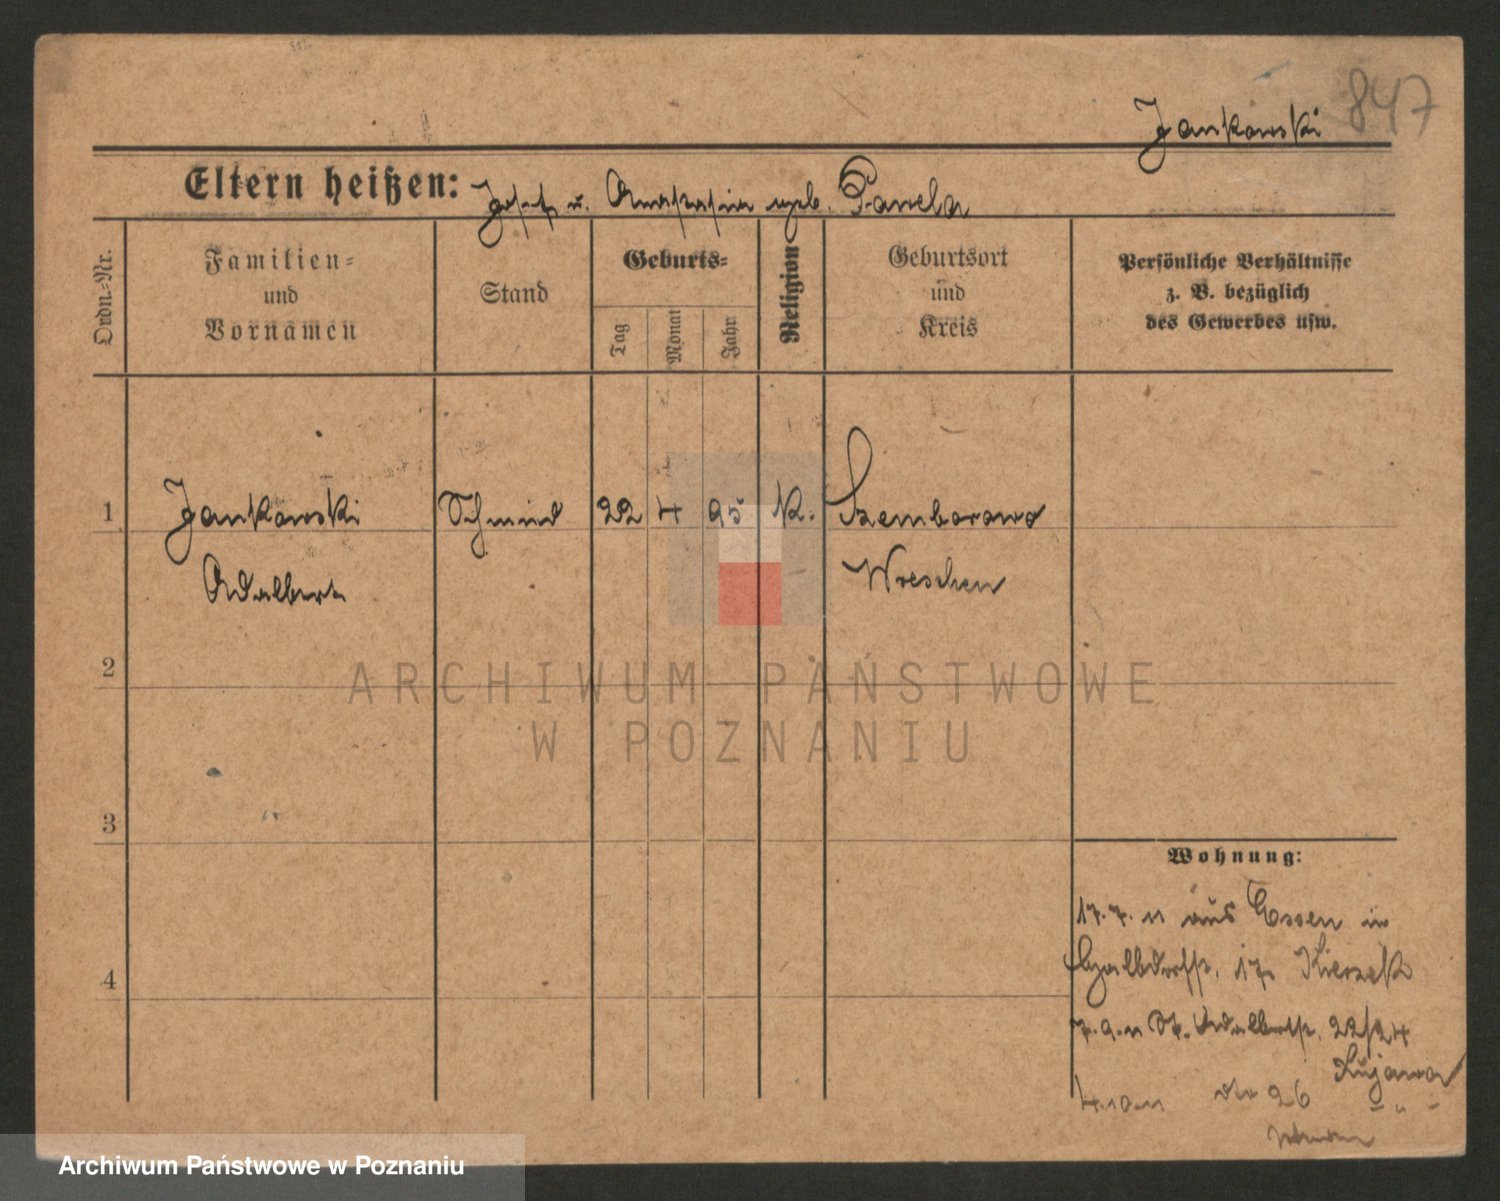 847
Jankowski
Eltern heißen: Josef u. Anastasia geb. Pawela
Ordn.-Nr.
Familien-
und
Vornamen
Stand
Geburts-
Tag
Monat
Jahr
Religion
Geburtsort
und
Kreis
Persönliche Verhältnisse
z. B. bezüglich
des Gewerbes usw.
1 Jankowski Schmied 22 4 95 K. Szemborowo
Adalbert Wreschen
2
3
4
Wohnung:
17.7.11 aus Essen in
17 Kierzek
7.9.11 St. Adalbertstr. 22/24
Kujawa
4.10.11 26 " "
ARCHIWUM PAŃSTWOWE
W POZNANIU
Archiwum Państwowe w Poznaniu